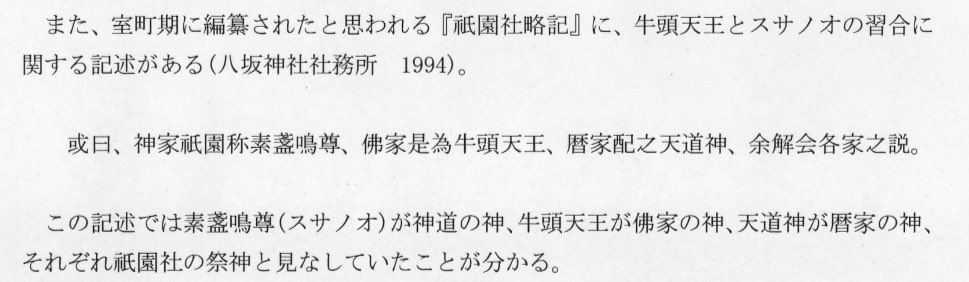 また、室町期に編纂されたと思われる『祇園社略記』に、牛頭天王とスサノオの習合に
関する記述がある(八坂神社社務所　1994)。
或曰、神家祇園称素盞鳴尊、佛家是為牛頭天王、暦家配之天道神、余解会各家之説。
この記述では素盞鳴尊(スサノオ)が神道の神、牛頭天王が佛家の神、天道神が暦家の神、
それぞれ祇園社の祭神と見なしていたことが分かる。